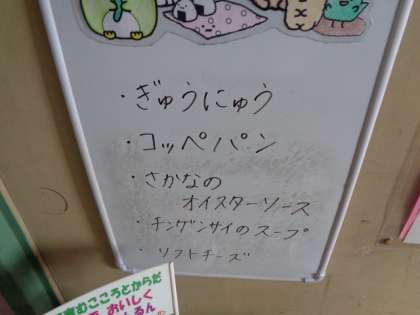 ・ぎゅうにゅう
・コッペパン
・さかなの
オイスターソース
・チンゲンサイのスープ
・ソフトチーズ
むこころとからだ
おいしく
るん